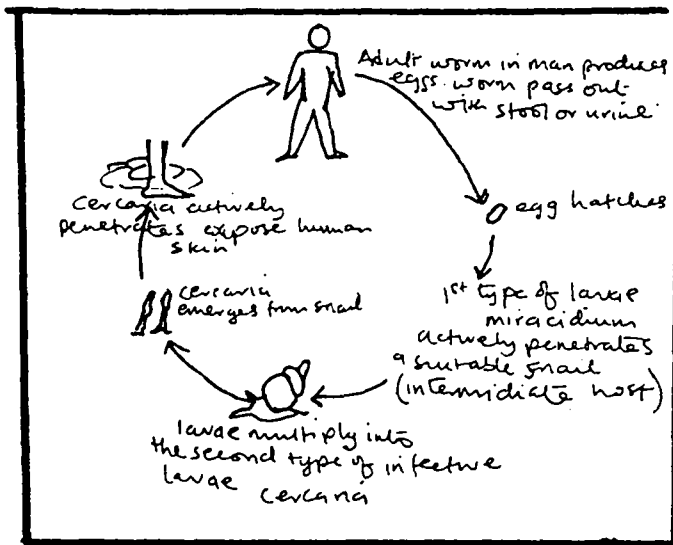 Adult worm in man produces
eggs. worm pass out
with stool or urine
egg hatches
1st type of larvae
miracidium
actively penetrates
a suitable snail
(intermidiate host)
larvae multiply into
the second type of infective
larvae cercaria
cercaria
emerges from snail
cercaria actively
penetrates expose human
skin